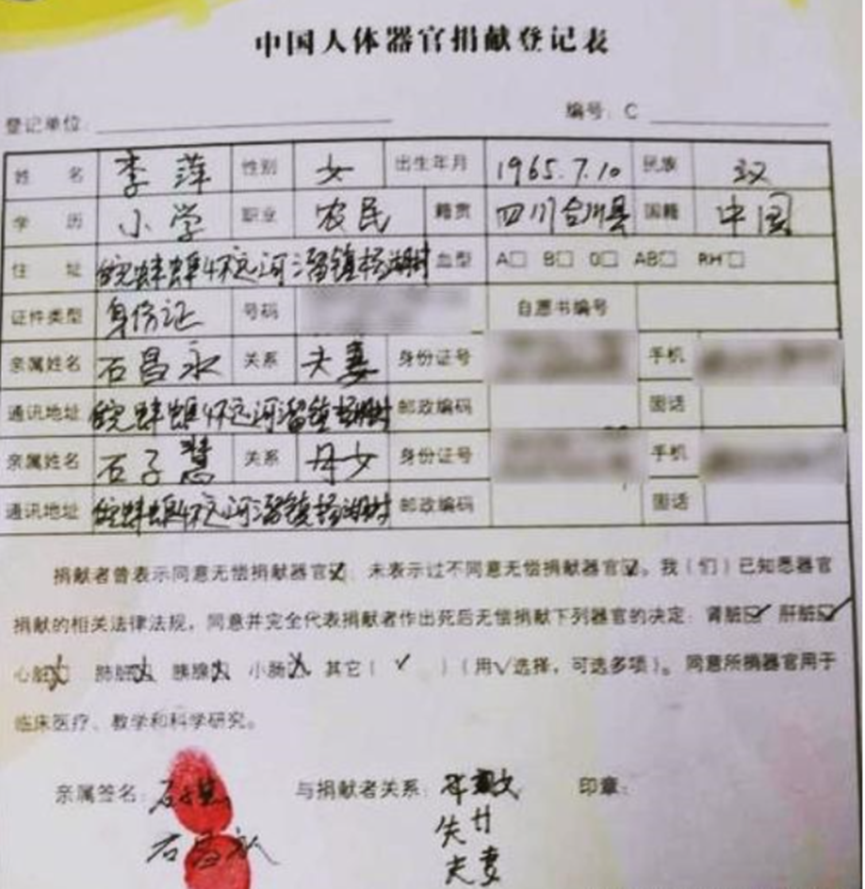 中国人体器官捐献登记表
登记单位: 编号: C
姓 名 李萍 性别 女 出生年月 1965.7.10 民族 汉
学 历 小学 职业 农民 籍贯 四川合川县 国籍 中国
住 址 皖蚌埠怀远河溜镇杨湖村 血型 A□ B□ O□ AB□ RH□
证件类型 身份证 号码 自愿书编号
亲属姓名 石昌永 关系 夫妻 身份证号 手机
通讯地址 皖蚌埠怀远河溜镇杨湖村 邮政编码 固话
亲属姓名 石子慧 关系 母女 身份证号 手机
通讯地址 皖蚌埠怀远河溜镇杨湖村 邮政编码 固话
捐献者曾表示同意无偿捐献器官☑; 未表示过不同意无偿捐献器官☑。我(们)已知愿器官
捐献的相关法律法规, 同意并完全代表捐献者作出死后无偿捐献下列器官的决定: 肾脏☑ 肝脏☑
心脏☒ 肺脏☒ 胰腺☒ 小肠☒ 其它( ✓ )(用√选择, 可选多项)。同意所捐器官用于
临床医疗、教学和科学研究。
亲属签名: 与捐献者关系: 印章:
石昌永
夫妻